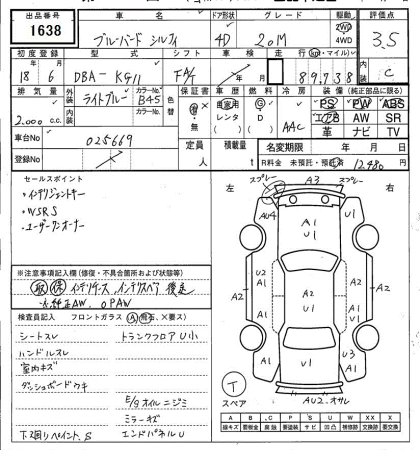 出品番号 車名 ドア形状 グレード 駆動 評価点
1638 ブルーバード シルフィ 4D 20M 2WD 4WD 3.5
初度登録 型式 シフト 車検 走行 (㎞・マイル) 内装
18 6 DBA-KG11 FAT 年 月 89,738 C
排気量 外装 カラーNo. 色替 保証書 車歴 燃料 冷房 装備 (純正部品に限る)
2,000 c.c. ライトブルー B45 有・無 自家用 G PS PW ABS
内装 カラーNo. レンタ D AAC エアB AW SR
車台No. 025669 革 ナビ TV
登録No. 定員 人 積載量 t 名変期限 年 月 日
R料金 未預託・預託済 12,480 円
セールスポイント
・インテリジェントキー
・WSRS
・ユーザーワンオーナー
左 スプレー A3 スプレー 右
AU4 A1 U1
A1
※注意事項記入欄(修復・不具合箇所および状態等)
取 保 インテリキー、インテリスペア 後送
純正AW、OPAW
U2 A1 A2 A2 U2 A2
検査員記入 フロントガラス (A・飛石、×要ス)
シートスレ トランクフロアU小
ハンドルスレ
室内キズ
ダッシュボードウキ
A1 U1 U3 A1
E/Gオイルニジミ
ミラーキズ
下廻りペイント、S エンドパネルU
T
スペア
AU2.オサレ
A B C P S U W XX X
線キズ 要板金 腐食 要塗装 サビ 凹凸 補修跡 交換跡 要交換